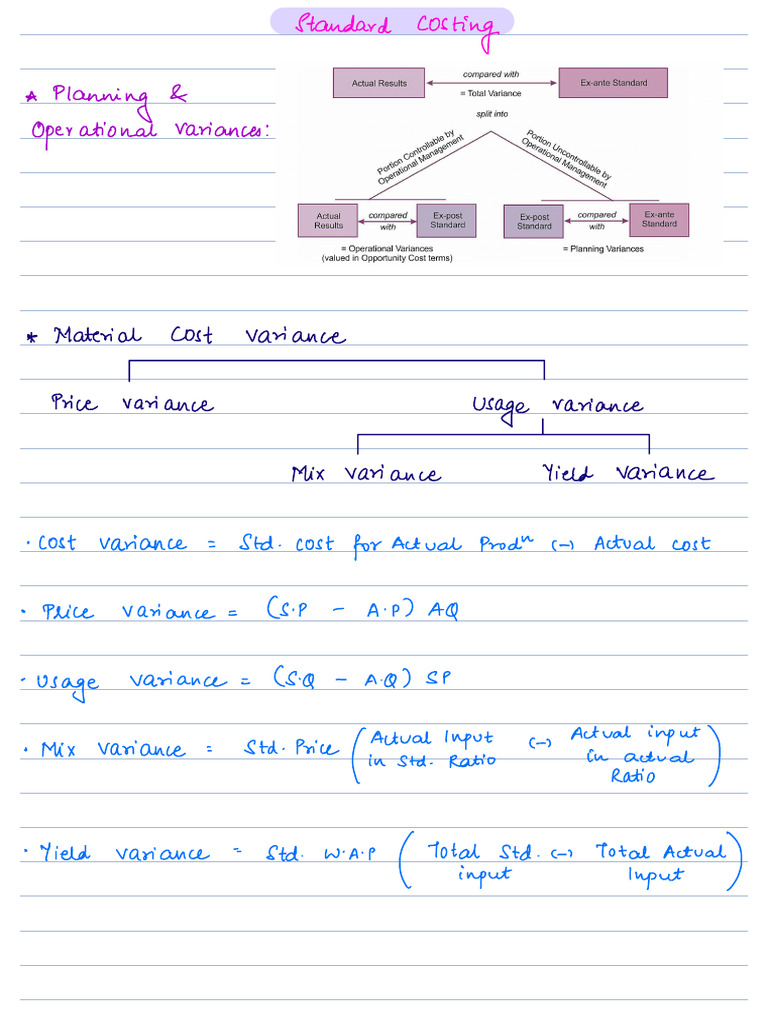 Standard Costing
* Planning &
Operational Variances:
Actual Results
compared with
= Total Variance
Ex-ante Standard
split into
Portion Controllable by
Operational Management
Portion Uncontrollable by
Operational Management
Actual
Results
compared
with
Ex-post
Standard
= Operational Variances
(valued in Opportunity Cost terms)
Ex-post
Standard
compared
with
Ex-ante
Standard
= Planning Variances
* Material Cost Variance
Price variance
Usage variance
Mix variance
Yield variance
· Cost variance = Std. cost for Actual Prodⁿ (-) Actual cost
· Price variance = (S.P - A.P) AQ
· Usage variance = (S.Q - A.Q) SP
· Mix variance = Std. Price (Actual Input in Std. Ratio (-) Actual input in actual Ratio)
· Yield variance = Std. W.A.P (Total Std. input (-) Total Actual Input)